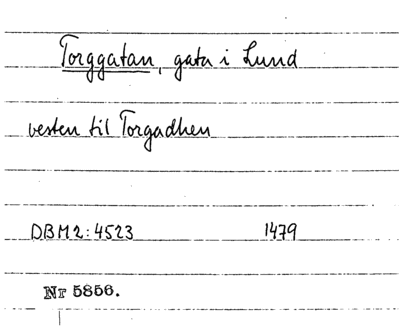 Torggatan, gata i Lund
vesten til Torgadhen
DBM2:4523 1479
Nr 5856.